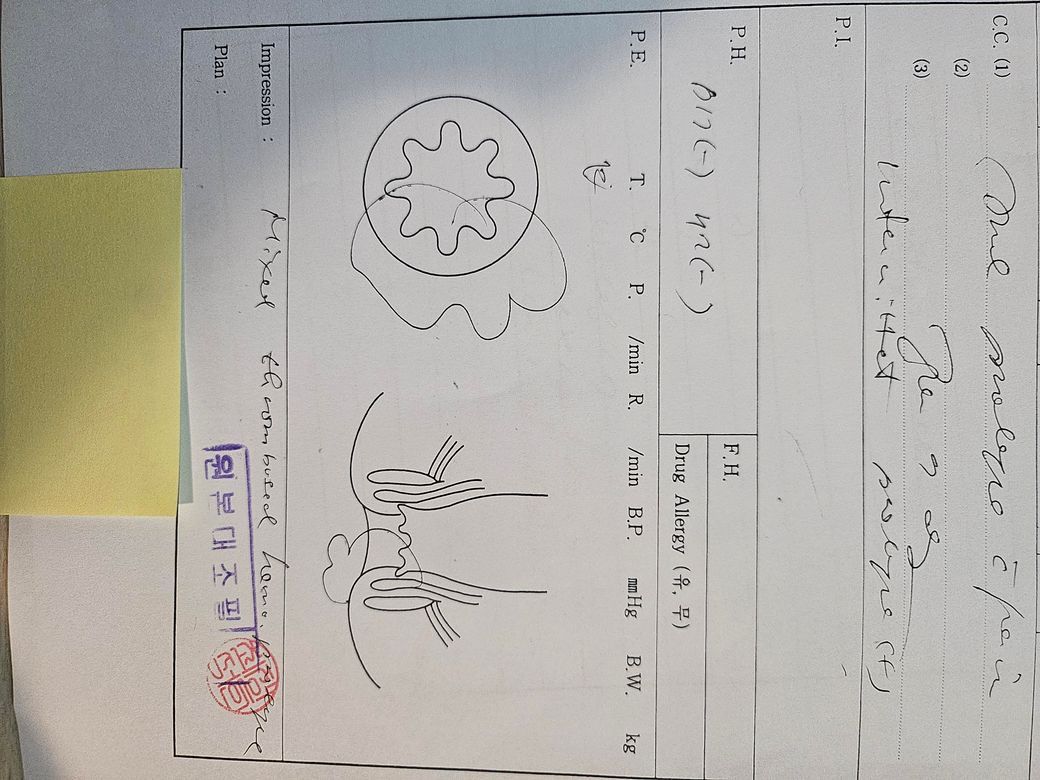 C.C. (1) Anal prolapse c̄ pain
(2)
(3)
intermittent prolapse (+)
P.I.
P.H. DM (-) HTN (-)
F.H.
Drug Allergy (유, 무)
P.E. T. ℃ P. /min R. /min B.P. ㎜Hg B.W. kg
Impression : Mixed thrombosed hemo. prolapse
Plan :
원본대조필